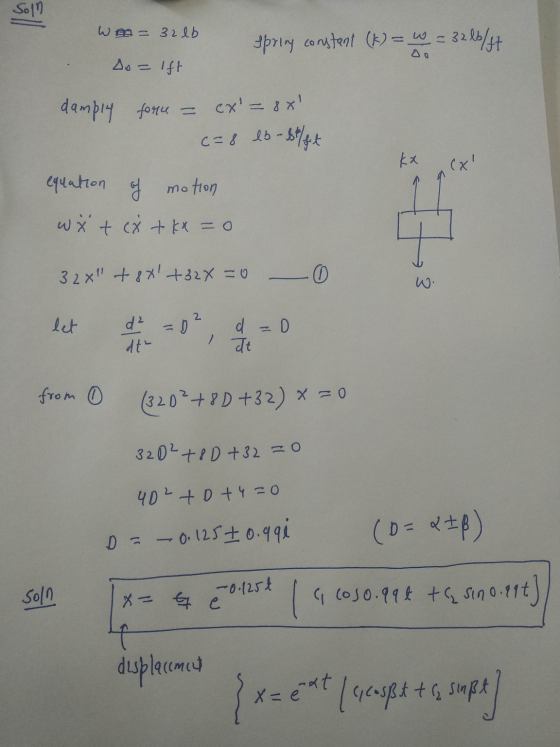 Soln
W = 32 lb
Δo = 1ft
Spring constant (k) = W/Δo = 32 lb/ft
damply force = cx' = 8x'
c = 8 lb-st/ft
kx cx'
W.
equation of motion
wẍ + cẋ + kx = 0
32x'' + 8x' + 32x = 0 —— ①
let d²/dt² = D², d/dt = D
from ① (32D² + 8D + 32) x = 0
32D² + 8D + 32 = 0
4D² + D + 4 = 0
D = -0.125 ± 0.99i (D = α ± β)
Soln x = e^-0.125t [c₁ cos 0.99t + c₂ sin 0.99t]
displacement
{ x = e^-αt [c₁ cosβt + c₂ sinβt]